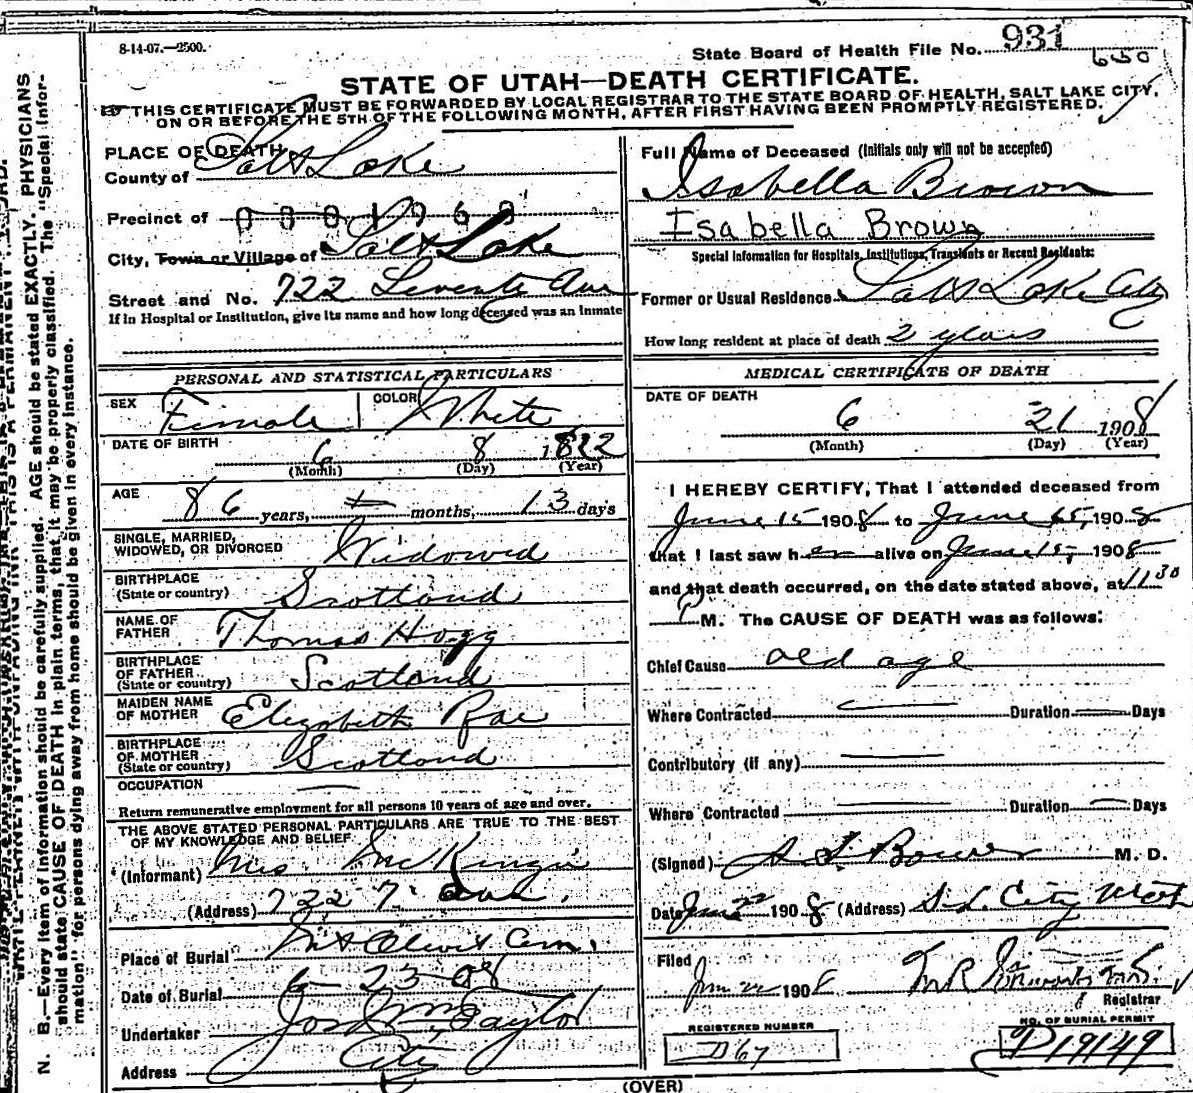 8-14-07.—2500.
State Board of Health File No. 931
630
STATE OF UTAH—DEATH CERTIFICATE.
THIS CERTIFICATE MUST BE FORWARDED BY LOCAL REGISTRAR TO THE STATE BOARD OF HEALTH, SALT LAKE CITY,
ON OR BEFORE THE 5TH OF THE FOLLOWING MONTH, AFTER FIRST HAVING BEEN PROMPTLY REGISTERED.
PLACE OF DEATH
County of Salt Lake
Precinct of
City, Town or Village of Salt Lake
Street and No. 722 Seventh Ave
If in Hospital or Institution, give its name and how long deceased was an Inmate
Full Name of Deceased (Initials only will not be accepted)
Isabella Brown
Isabella Brown
Special Information for Hospitals, Institutions, Transients or Recent Residents:
Former or Usual Residence Salt Lake City
How long resident at place of death 2 years
PERSONAL AND STATISTICAL PARTICULARS
SEX Female COLOR White
DATE OF BIRTH 6 8 1822
(Month) (Day) (Year)
AGE 86 years, months, 13 days
SINGLE, MARRIED,
WIDOWED, OR DIVORCED Widowed
BIRTHPLACE
(State or country) Scotland
NAME OF
FATHER Thomas Hogg
BIRTHPLACE
OF FATHER
(State or country) Scotland
MAIDEN NAME
OF MOTHER Elizabeth Rae
BIRTHPLACE
OF MOTHER
(State or country) Scotland
OCCUPATION —
Return remunerative employment for all persons 10 years of age and over.
THE ABOVE STATED PERSONAL PARTICULARS ARE TRUE TO THE BEST
OF MY KNOWLEDGE AND BELIEF
(Informant) Mrs McKinzie
(Address) 722 7" Ave.
Place of Burial Mt Olivet Cem.
Date of Burial 6-23-08
Undertaker Jos Wm Taylor
Address City
MEDICAL CERTIFICATE OF DEATH
DATE OF DEATH
6 21 1908
(Month) (Day) (Year)
I HEREBY CERTIFY, That I attended deceased from
June 15 1908 to June 15, 1908
that I last saw her alive on June 15, 1908
and that death occurred, on the date stated above, at 11 30
P M. The CAUSE OF DEATH was as follows:
Chief Cause old age
Where Contracted — Duration — Days
Contributory (if any) —
Where Contracted — Duration — Days
(Signed) Bower M. D.
Date June 22 1908 (Address) S. L. City Utah
Filed
June 22 1908
Registrar
REGISTERED NUMBER
D 67
NO. OF BURIAL PERMIT
P19149
(OVER)
N. B.—Every item of information should be carefully supplied. AGE should be stated EXACTLY. PHYSICIANS
should state CAUSE OF DEATH in plain terms, that it may be properly classified. The "Special Infor-
mation" for persons dying away from home should be given in every instance.